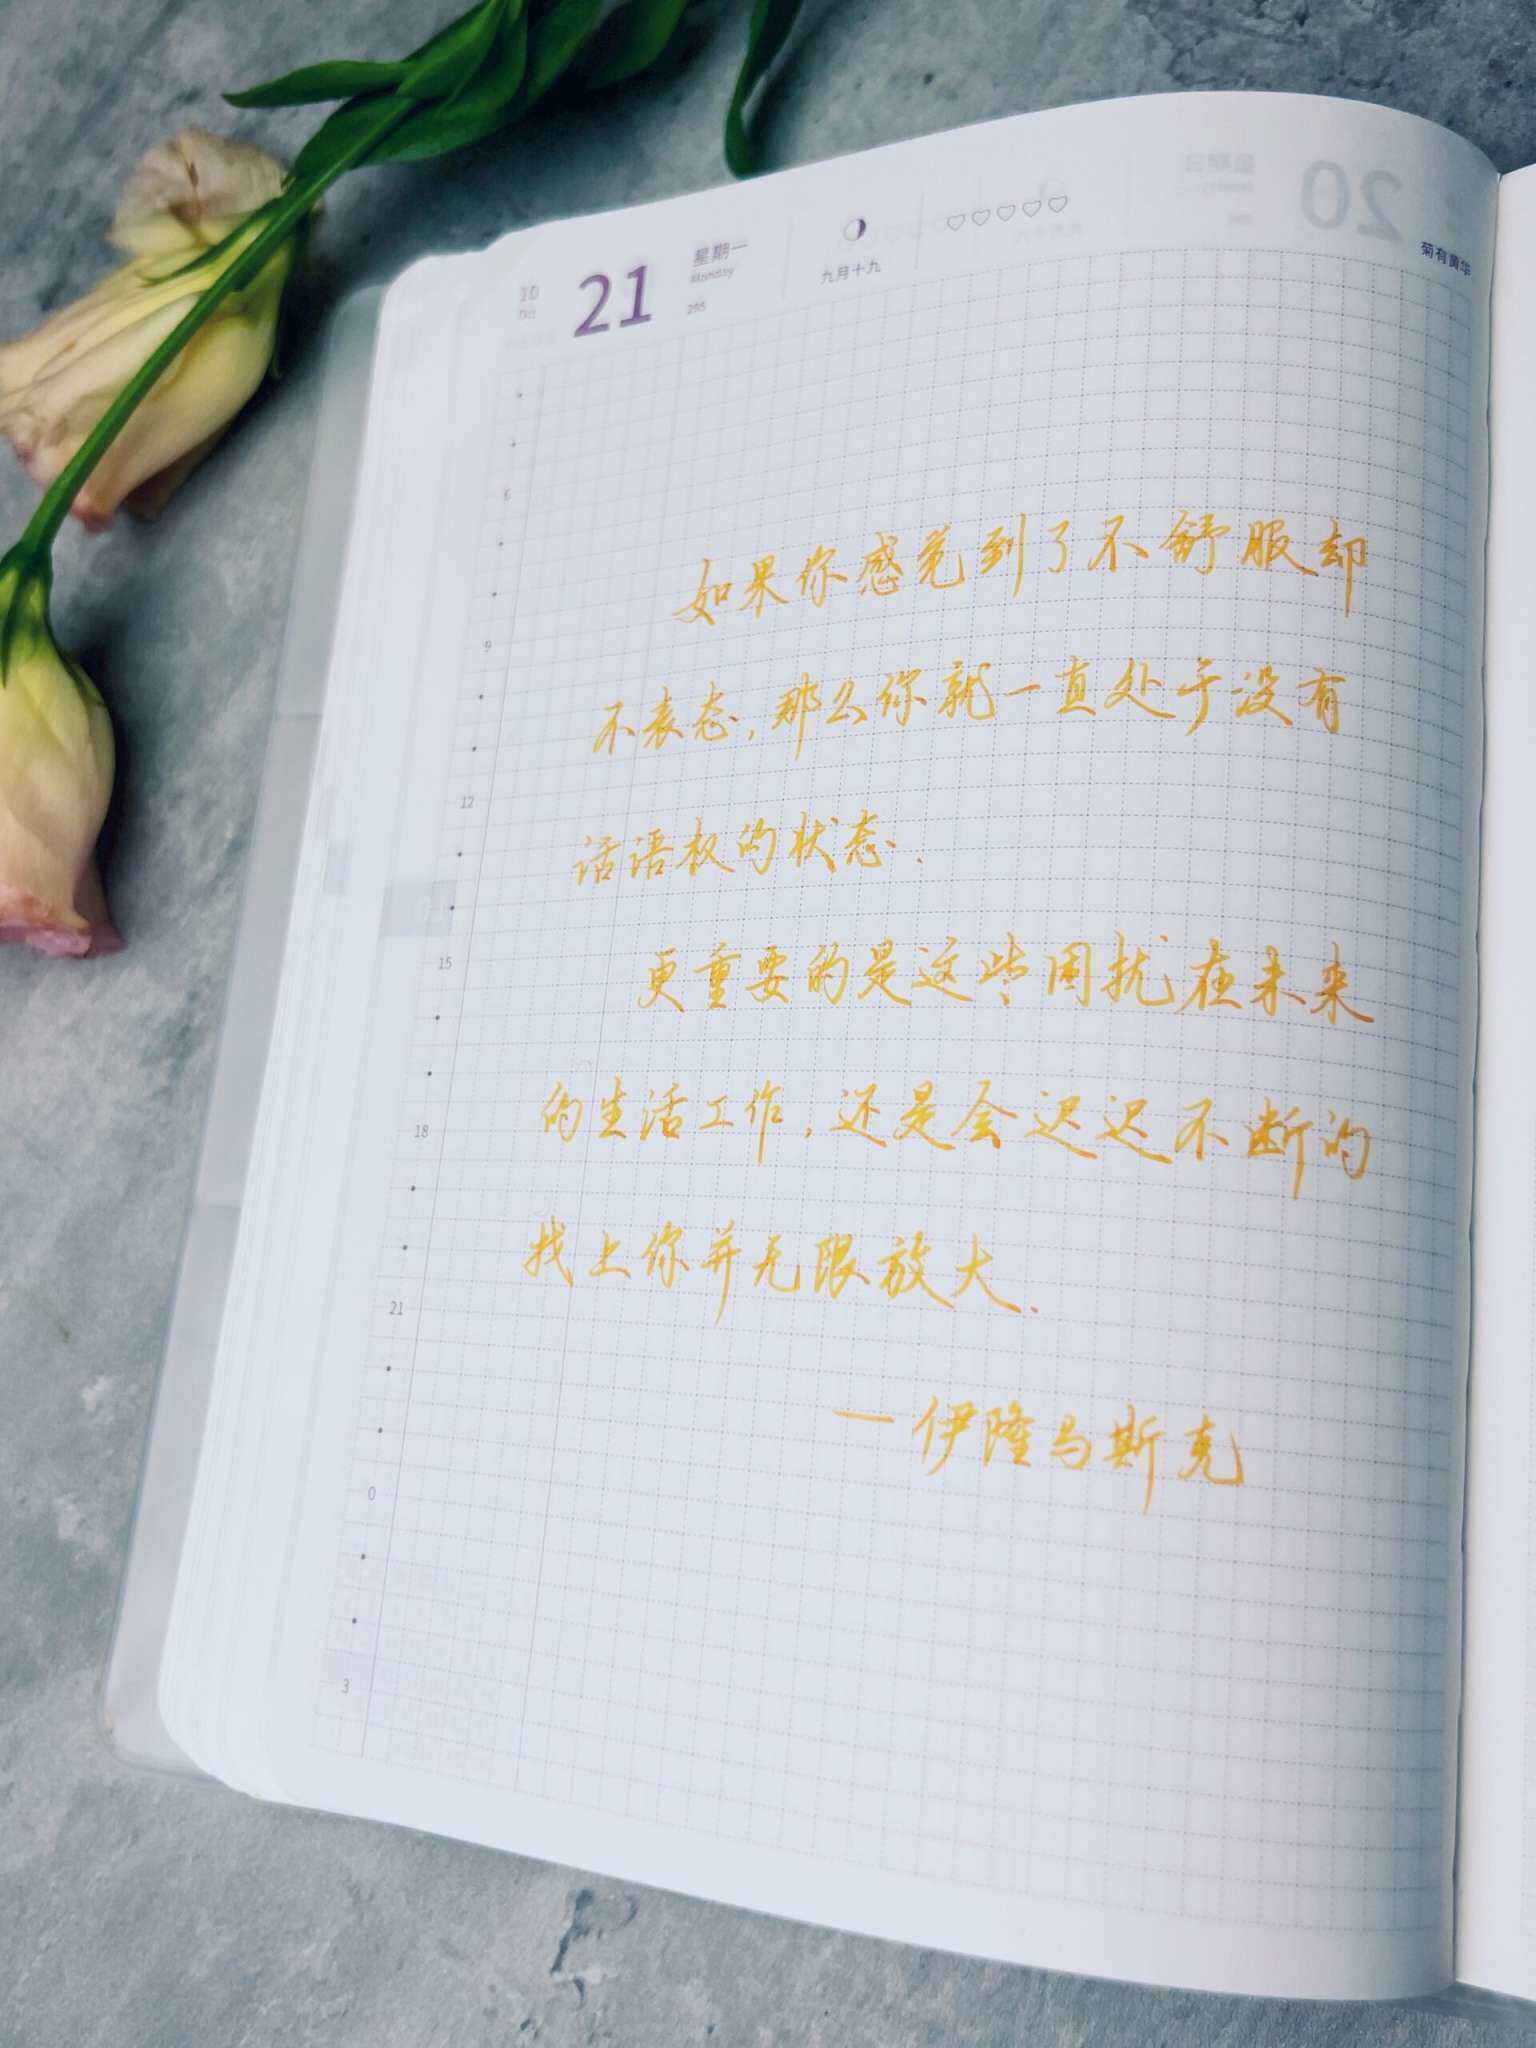 10
Oct
21
星期一
Monday
295
九月十九
20
菊有黄华
如果你感觉到了不舒服却
不表态,那么你就一直处于没有
话语权的状态.
更重要的是这些困扰在未来
的生活工作,还是会迟迟不断的
找上你并无限放大.
一伊隆马斯克
6
9
12
15
18
21
0
3